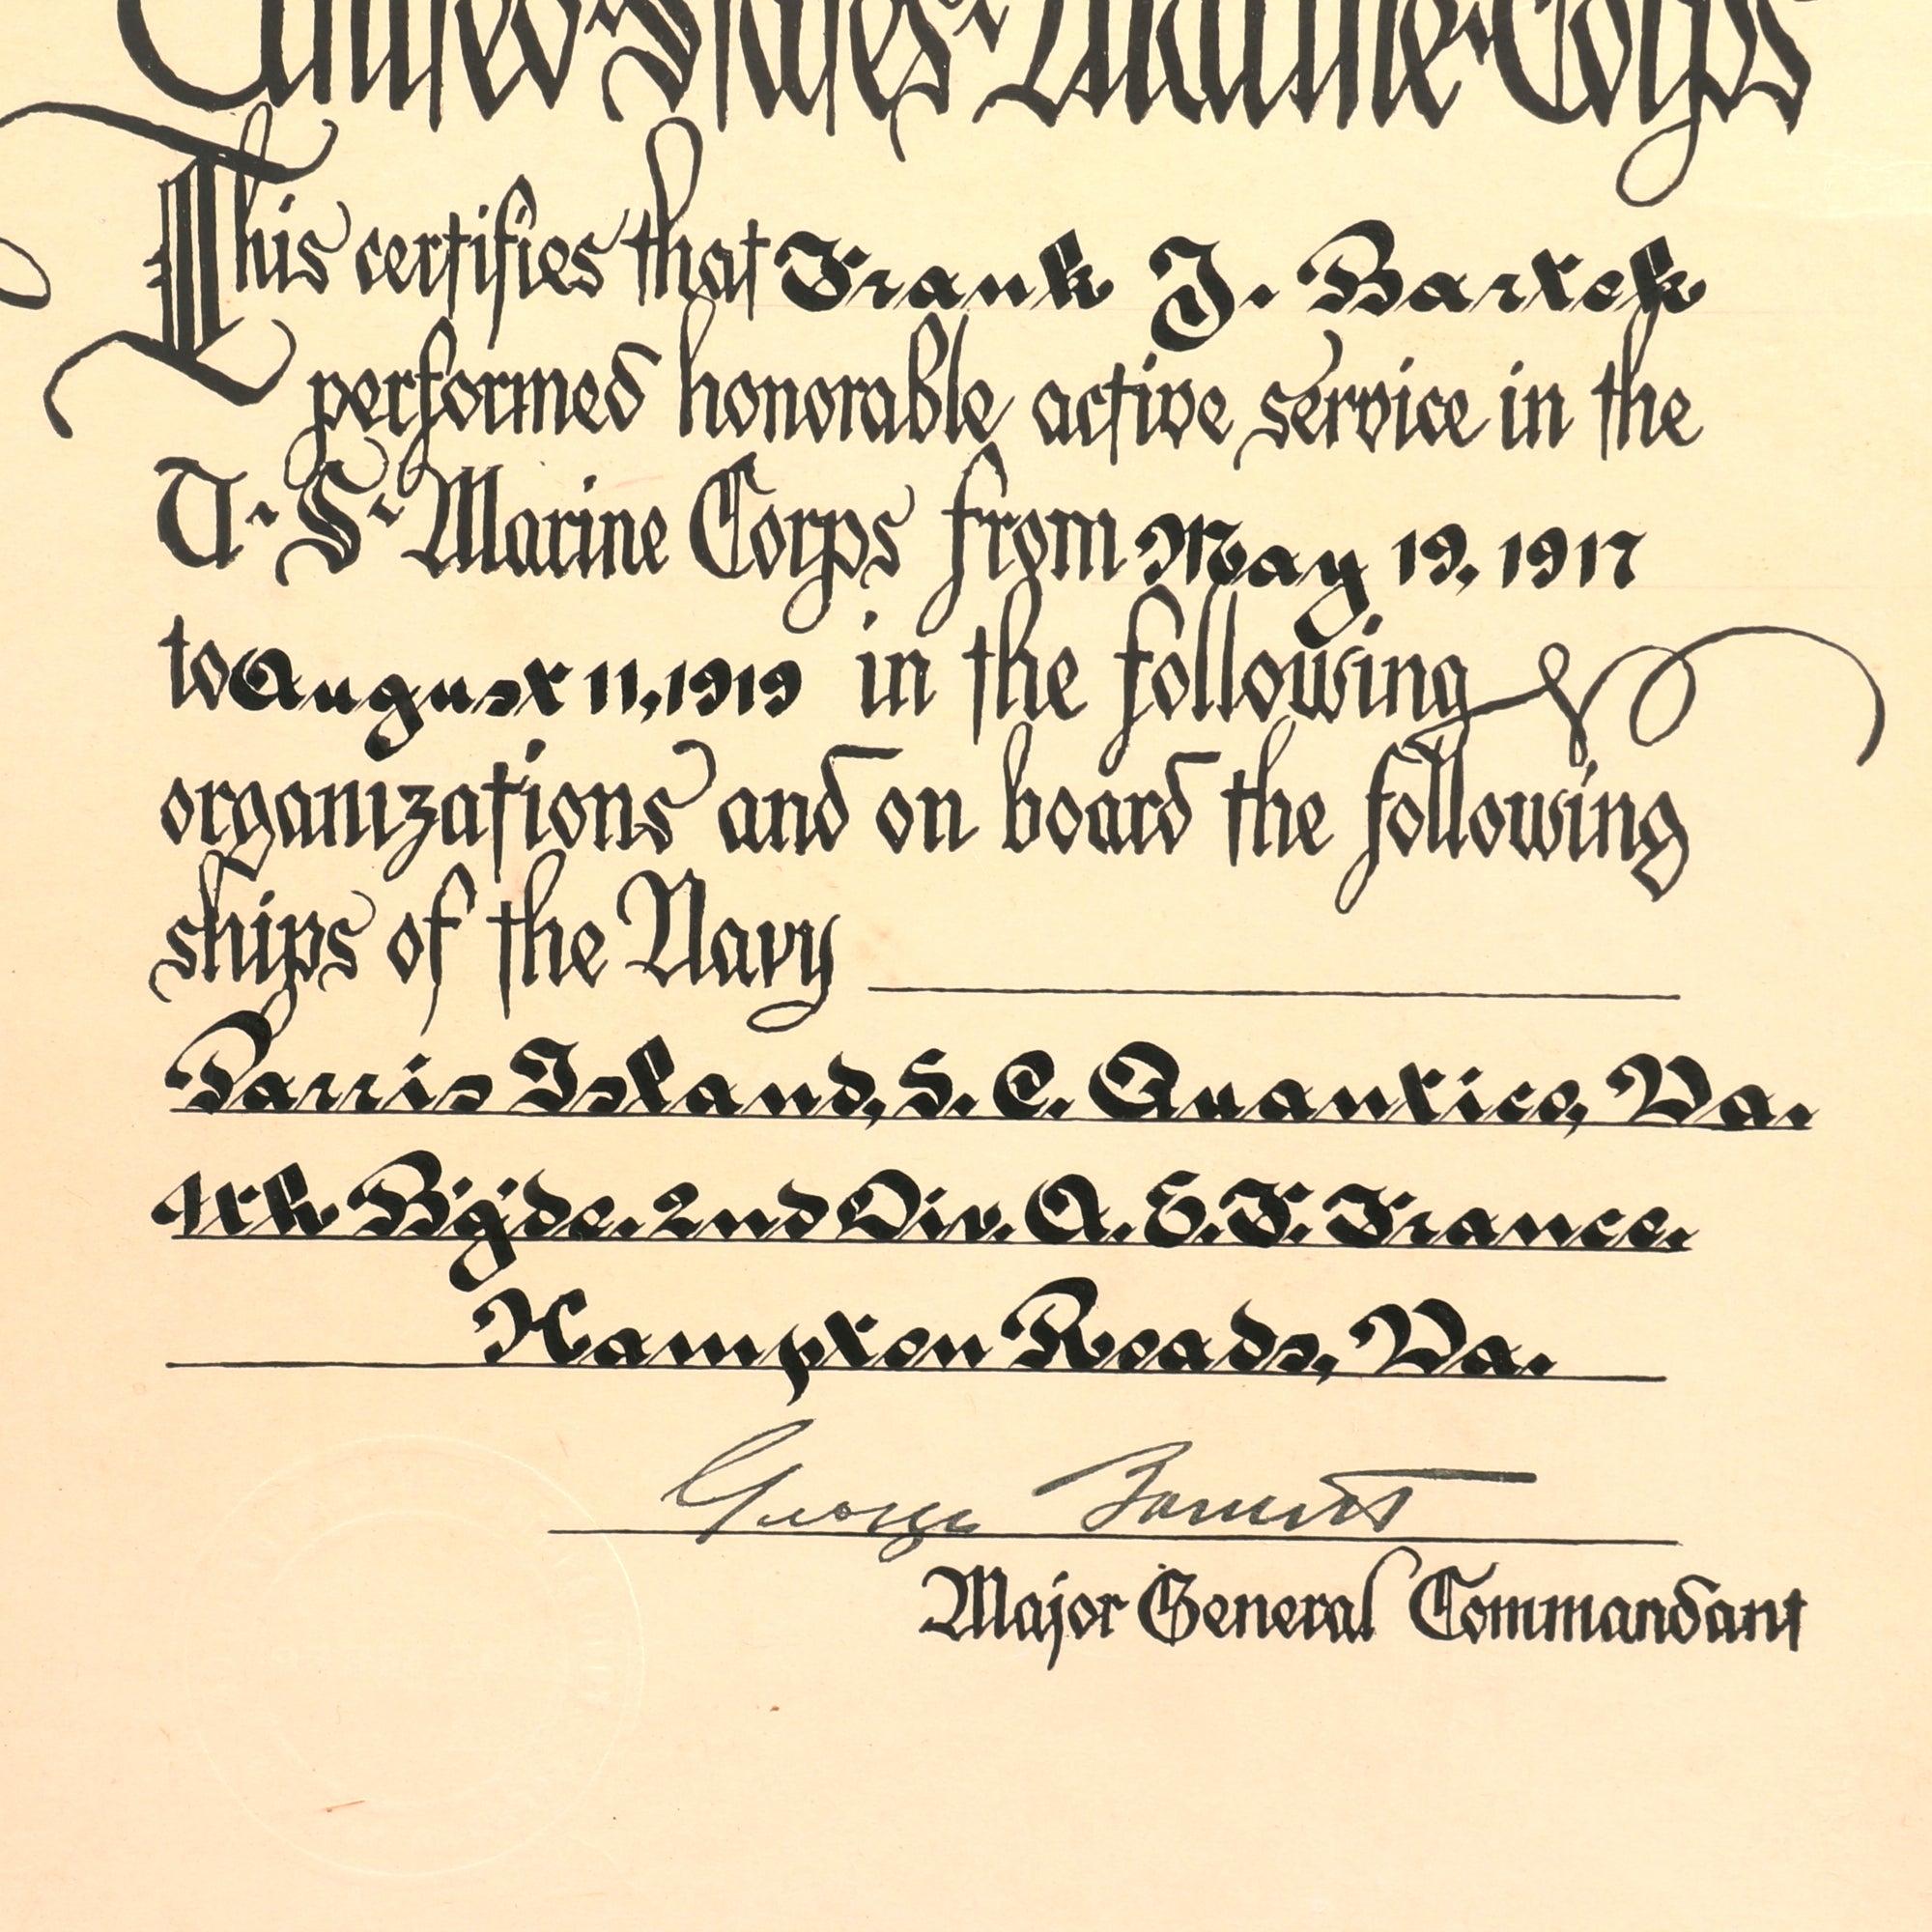 United States Marine Corps
This certifies that Frank J. Bartek
performed honorable active service in the
U. S. Marine Corps from May 19, 1917
to August 11, 1919 in the following
organizations and on board the following
ships of the Navy
Parris Island, S. C. Quantico, Va.
4th Bgde. 2nd Div. A. E. F. France.
Hampton Roads, Va.
George Barnett
Major General Commandant